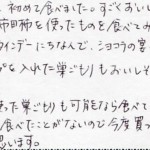 初めて食べました。すごくおいし
市田柿を使ったものを食べてみ
タインデーにちなんで、ショコラの宴
を入れた巣ごもりもおいしそ
た巣ごもりも可能なら食べて
食べたことがないので今度買っ
思います。